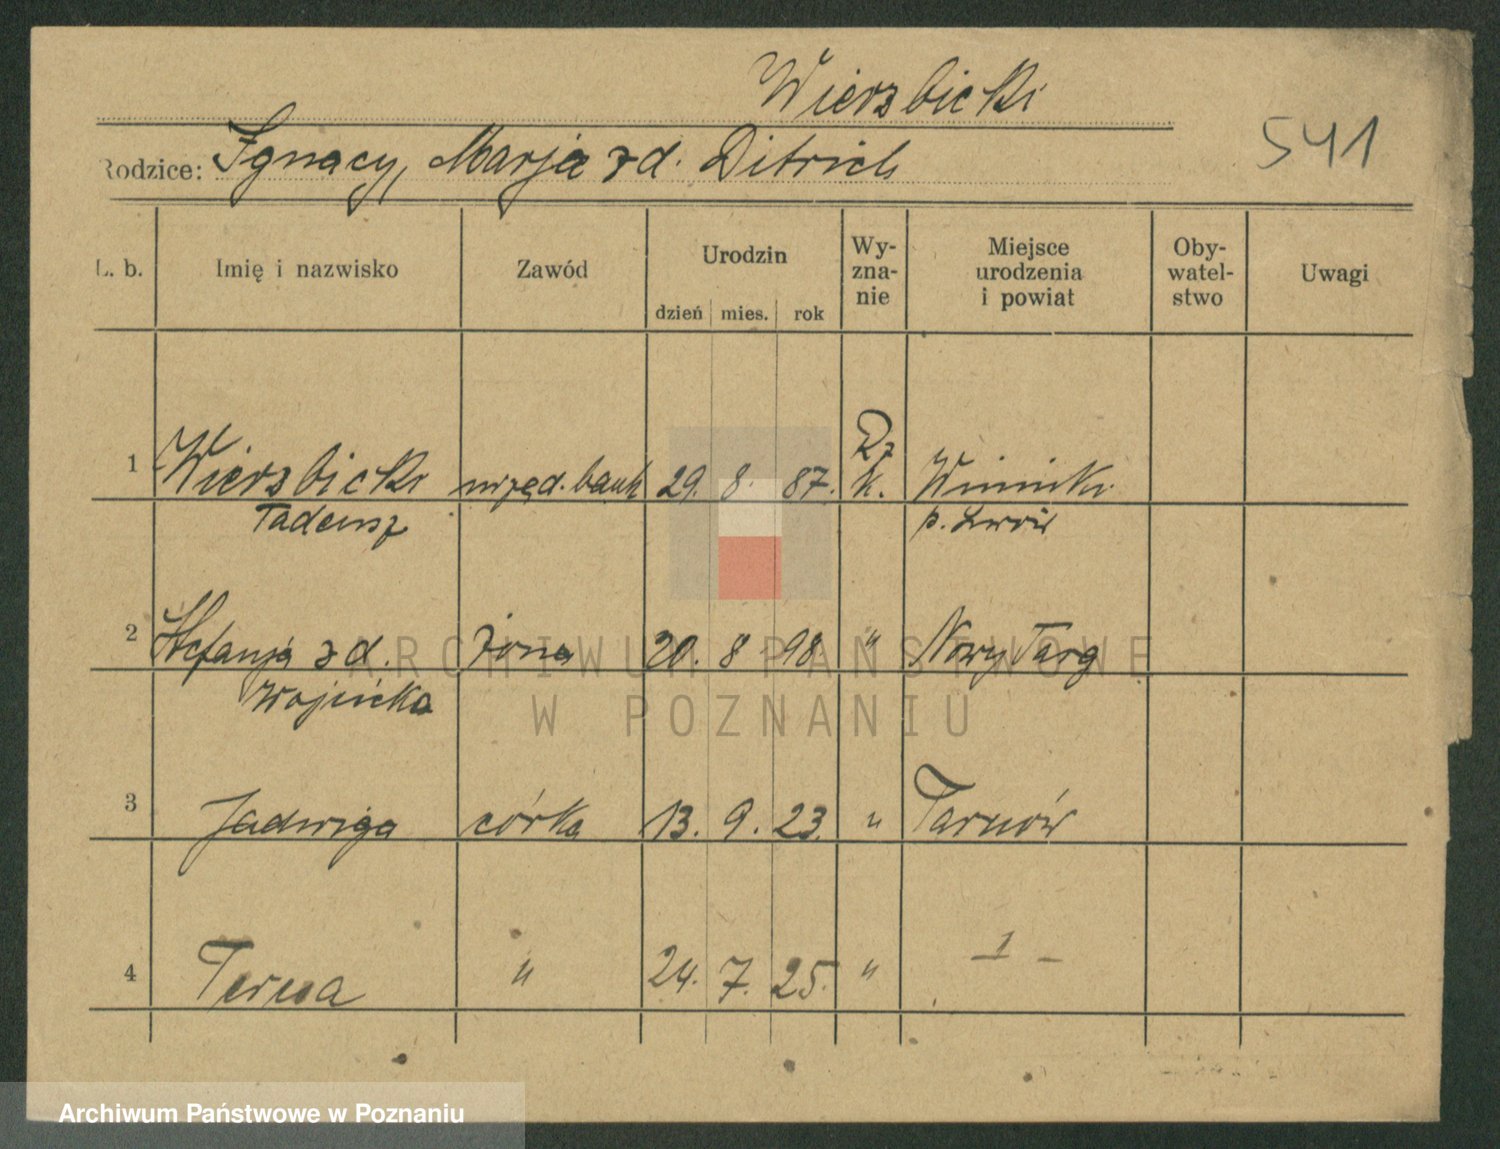 Wierzbicki
541
Rodzice: Ignacy, Marja zd. Ditrich
L. b. Imię i nazwisko Zawód Urodzin dzień mies. rok Wy-zna-nie Miejsce urodzenia i powiat Oby-watel-stwo Uwagi
1 Wierzbicki urzęd. bank 29. 8. 87. Rz k. Winniki
Tadeusz p. Lwów
2 Stefanja zd. żona 20. 8 98. " Nowy Targ
Wojnicka
3 Jadwiga córka 13. 9. 23. " Tarnów
4 Teresa " 24. 7. 25. " - 1 -
ARCHIWUM PAŃSTWOWE
W POZNANIU
Archiwum Państwowe w Poznaniu